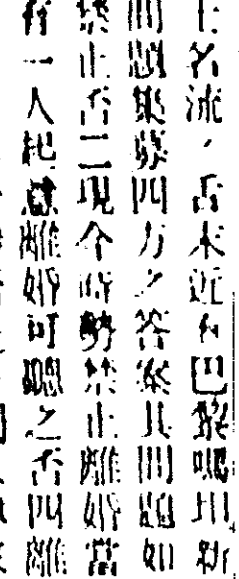 士名流，告末近有巴黎鳴坦新
問題集募四方之答案其問題如
禁止否二現今時勢禁止離婚當
有一人起意離婚可聽之否四離